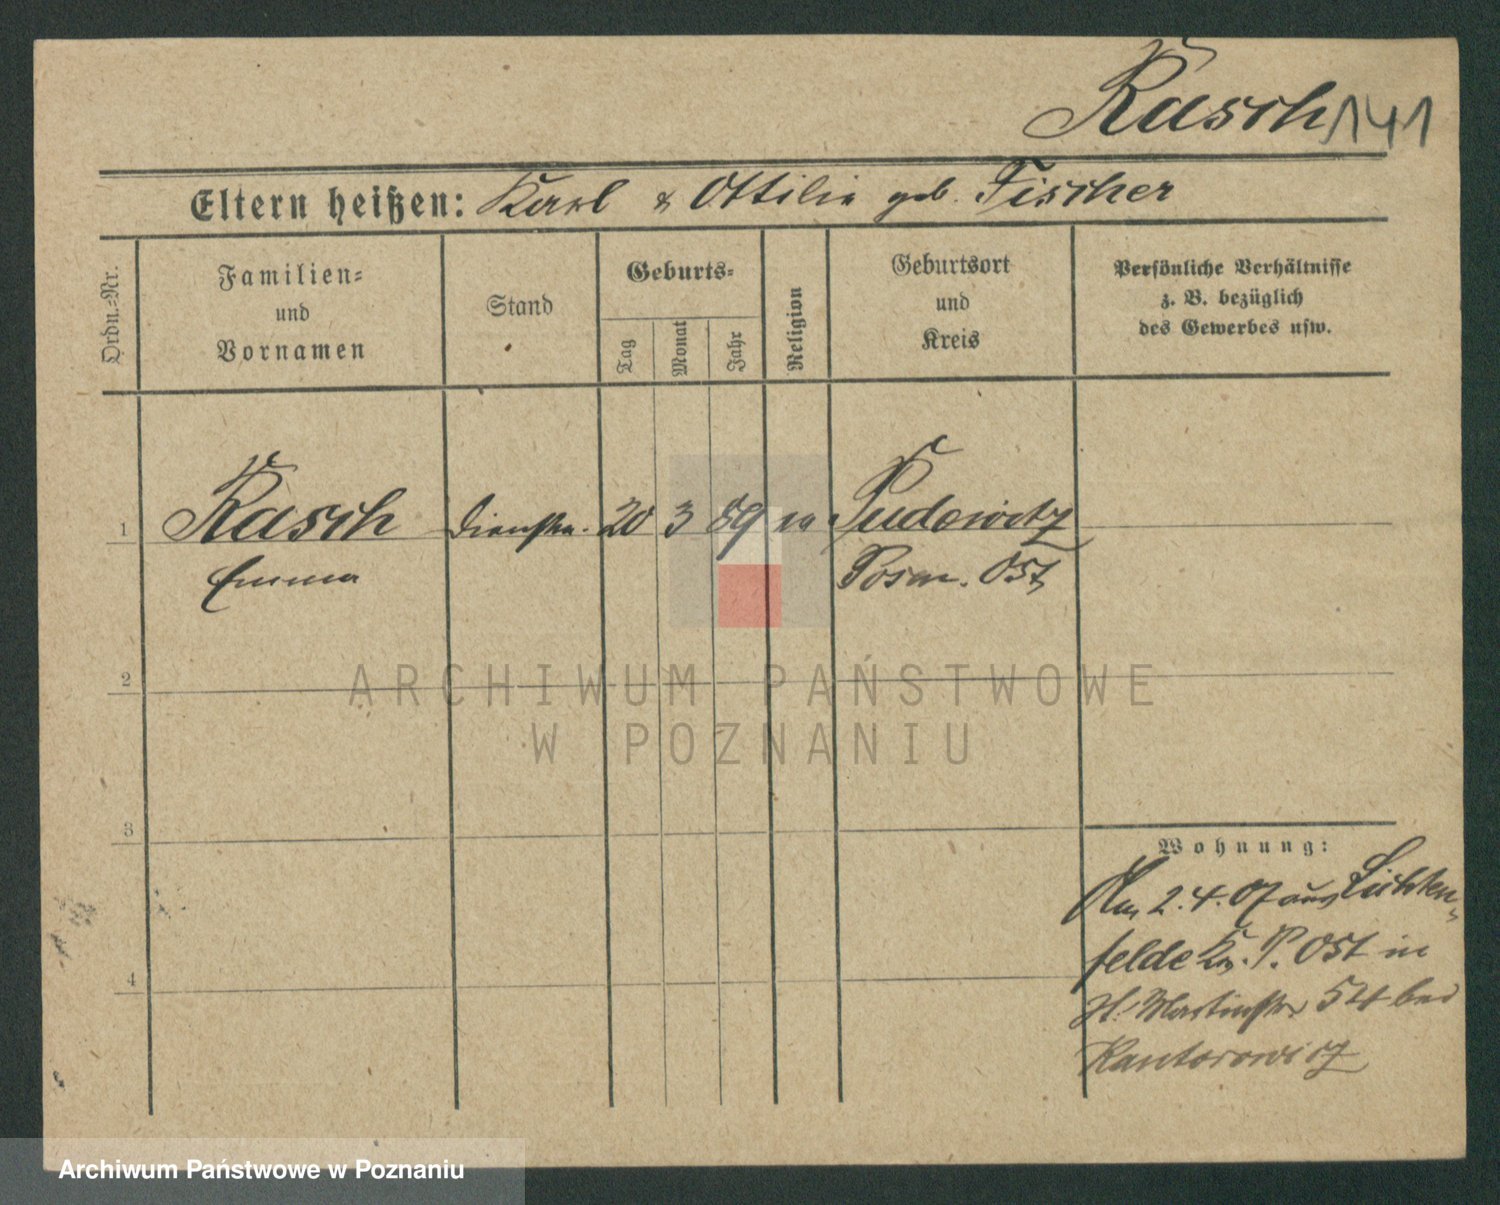 Rasch 141
Eltern heißen: Karl & Ottilie geb. Fischer
Ordn.-Nr.
Familien-
und
Vornamen
Stand
Geburts-
Tag
Monat
Jahr
Religion
Geburtsort
und
Kreis
Persönliche Verhältnisse
z. B. bezüglich
des Gewerbes usw.
1 Rasch Dienstm. 20 3 89 ev Pudewitz
Emma Posen. Ost
2
3
4
Wohnung:
Am 2.4.07 aus Lichten-
felde Kr. P. Ost in
St. Martinstr 54 bei
Kantorowicz
ARCHIWUM PAŃSTWOWE
W POZNANIU
Archiwum Państwowe w Poznaniu